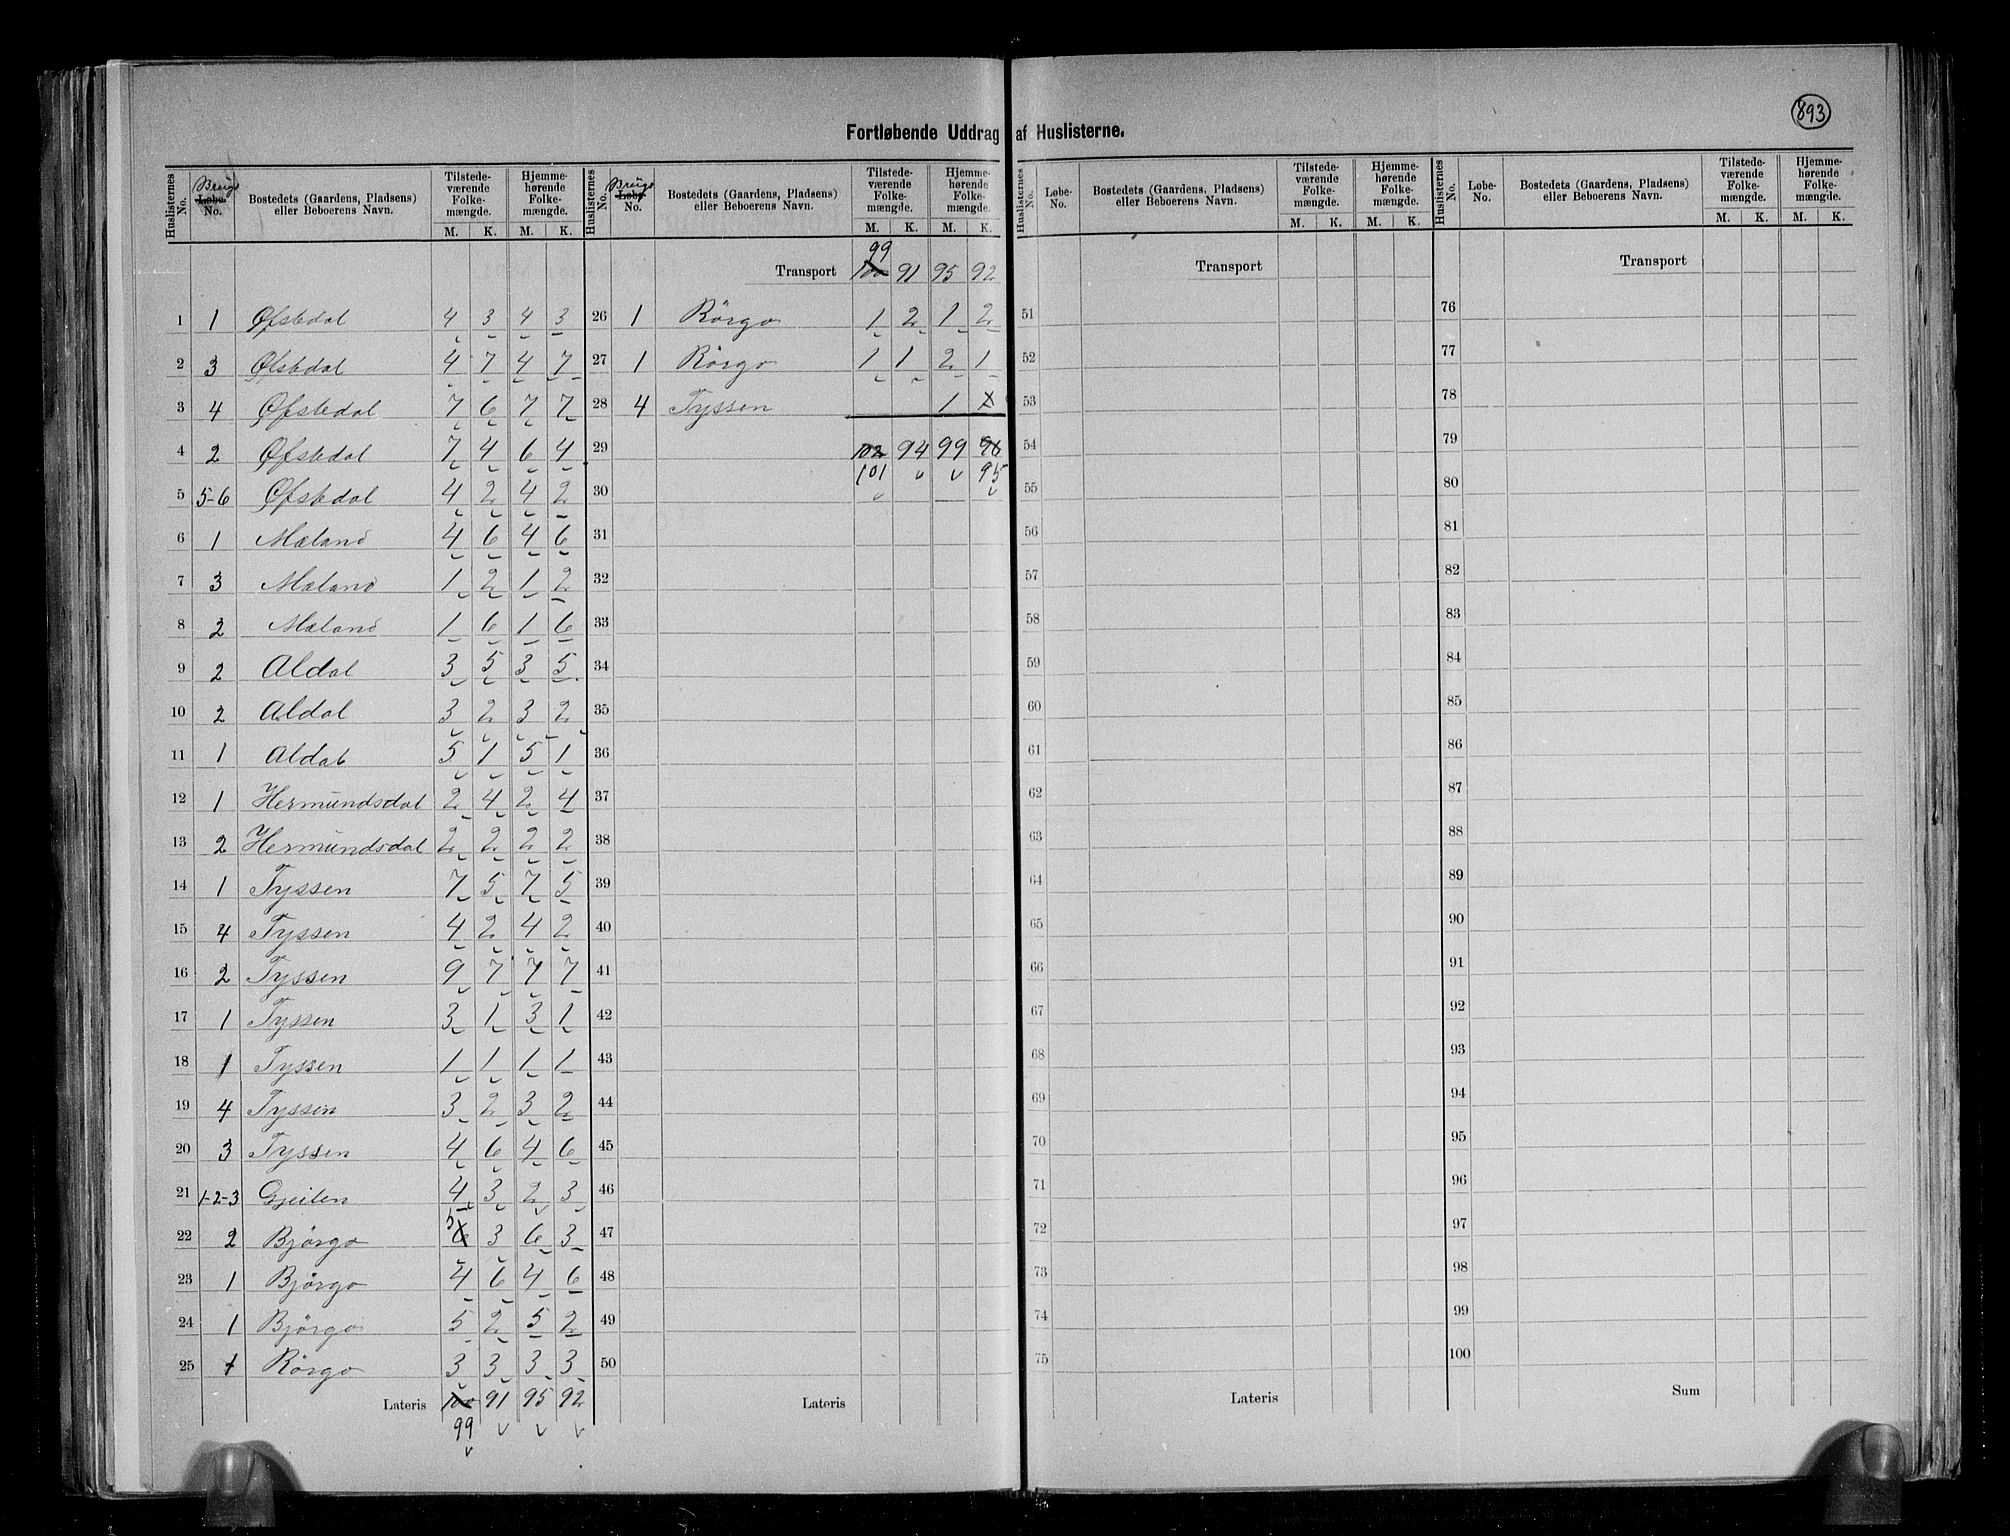 893
Fortløbende Uddrag af Huslisterne.
Huslisternes No. Brugs Løbe- No. Bostedets (Gaardens, Pladsens) eller Beboerens Navn. Tilstede-værende Folke-mængde. M. K. Hjemme-hørende Folke-mængde. M. K.
1 1 Øfstedal 4 3 4 3
2 3 Øfstedal 4 7 4 7
3 4 Øfstedal 7 6 7 7
4 2 Øfstedal 7 4 6 4
5 5-6 Øfstedal 4 2 4 2
6 1 Mæland 4 6 4 6
7 3 Mæland 1 2 1 2
8 2 Mæland 1 6 1 6
9 2 Aldal 3 5 3 5
10 2 Aldal 3 2 3 2
11 1 Aldal 5 1 5 1
12 1 Hermundsdal 2 4 2 4
13 2 Hermundsdal 2 2 2 2
14 1 Tyssen 7 5 7 5
15 4 Tyssen 4 2 4 2
16 2 Tyssen 9 7 7 7
17 1 Tyssen 3 1 3 1
18 1 Tyssen 1 1 1 1
19 4 Tyssen 3 2 3 2
20 3 Tyssen 4 6 4 6
21 1-2-3 Gjeilen 4 3 2 3
22 2 Bjørgo 5 6 3 6 3
23 1 Bjørgo 4 6 4 6
24 1 Bjørgo 5 2 5 2
25 1 Rörgo 3 3 3 3
Lateris 100 91 95 92
99
Huslisternes No. Brugs Løbe- No. Bostedets (Gaardens, Pladsens) eller Beboerens Navn. Tilstede-værende Folke-mængde. M. K. Hjemme-hørende Folke-mængde. M. K.
99
Transport 100 91 95 92
26 1 Rörgo 1 2 1 2
27 1 Rörgo 1 1 2 1
28 4 Tyssen 1
29 102 94 99 96
30 101 95
31
32
33
34
35
36
37
38
39
40
41
42
43
44
45
46
47
48
49
50
Lateris
Huslisternes No. Løbe-No. Bostedets (Gaardens, Pladsens) eller Beboerens Navn. Tilstede-værende Folke-mængde. M. K. Hjemme-hørende Folke-mængde. M. K.
Transport
51
52
53
54
55
56
57
58
59
60
61
62
63
64
65
66
67
68
69
70
71
72
73
74
75
Lateris
Huslisternes No. Løbe-No. Bostedets (Gaardens, Pladsens) eller Beboerens Navn. Tilstede-værende Folke-mængde. M. K. Hjemme-hørende Folke-mængde. M. K.
Transport
76
77
78
79
80
81
82
83
84
85
86
87
88
89
90
91
92
93
94
95
96
97
98
99
100
Sum